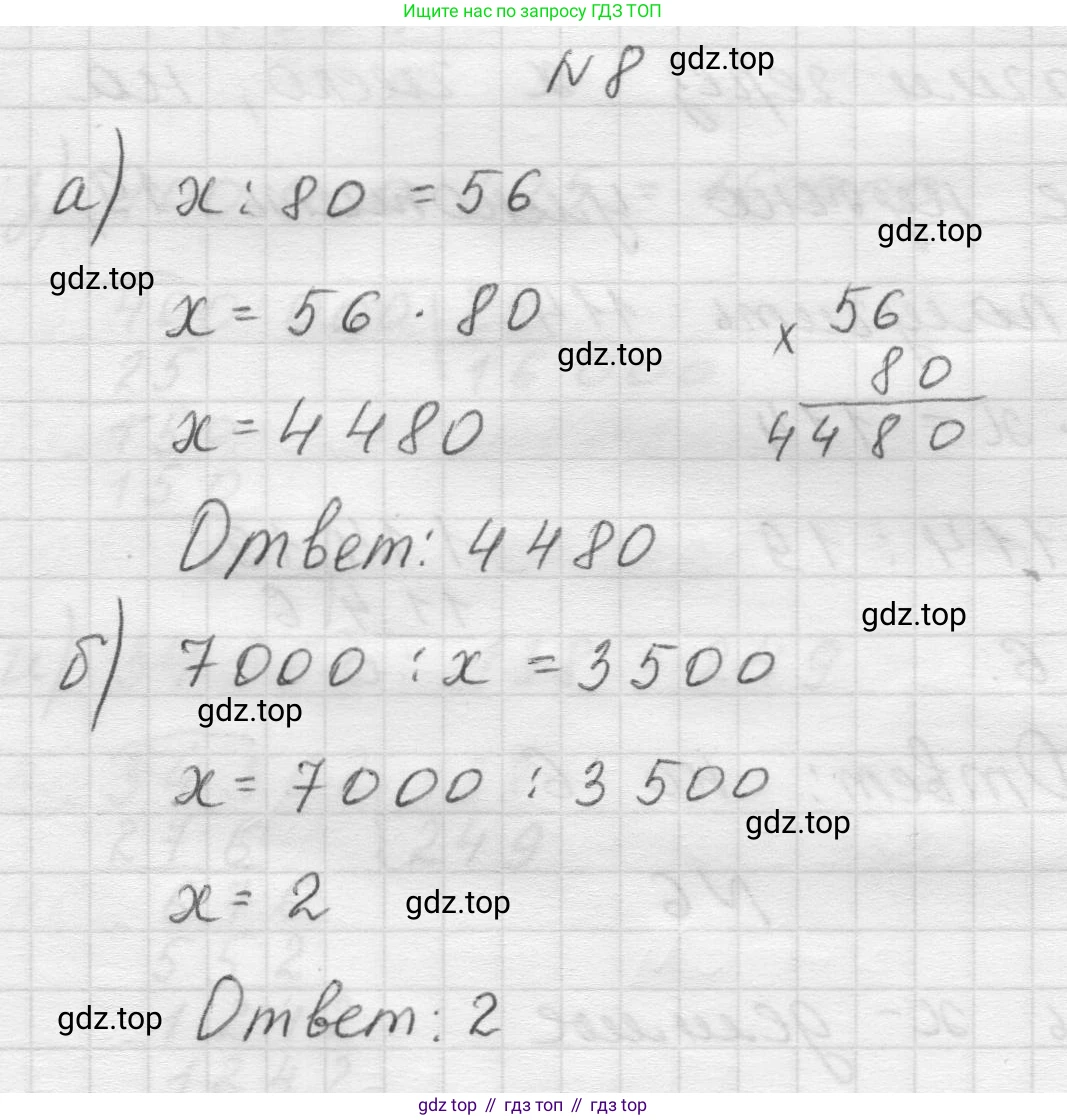 Ищите нас по запросу ГДЗ ТОП
N 8 gdz.top
а) x : 80 = 56
gdz.top
gdz.top
x = 56 · 80
x 56
gdz.top
80
x = 4480
4480
Ответ: 4480
gdz.top
б) 7000 : x = 3500
gdz.top
x = 7000 : 3500
gdz.top
x = 2 gdz.top
gdz.top Ответ: 2
gdz top // гдз топ // gdz top